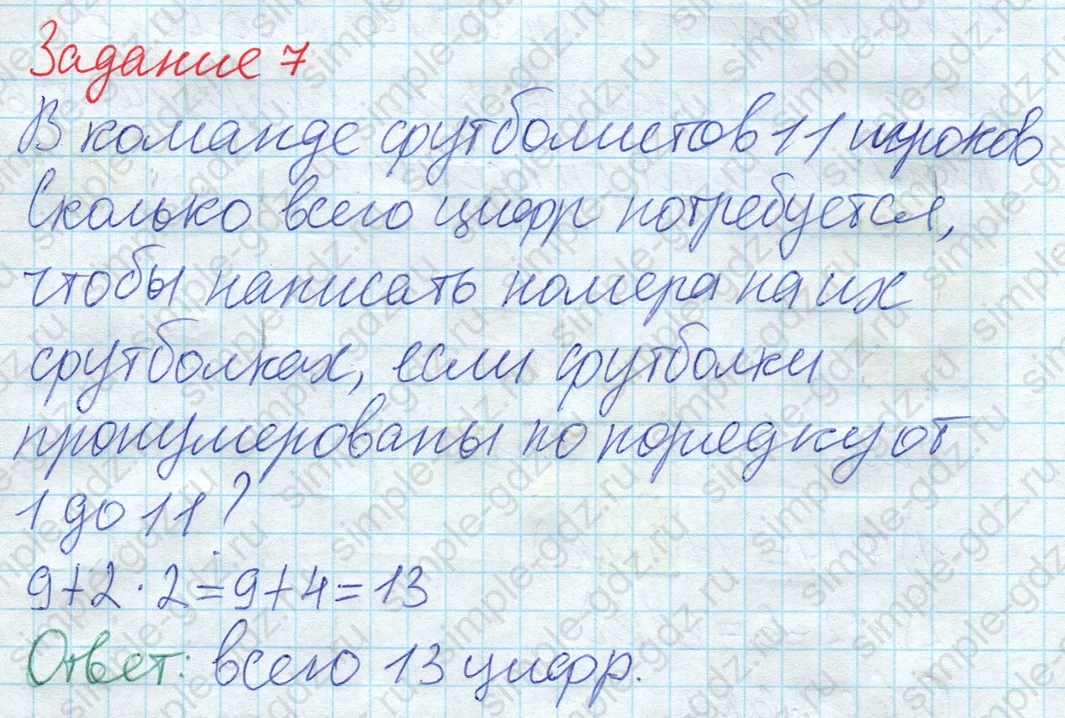 Задание 7
В команде футболистов 11 игроков
Сколько всего цифр потребуется,
чтобы написать номера на их
футболках, если футболки
пронумерованы по порядку от
1 до 11?
9+2·2=9+4=13
Ответ: всего 13 цифр.
simple-gdz.ru